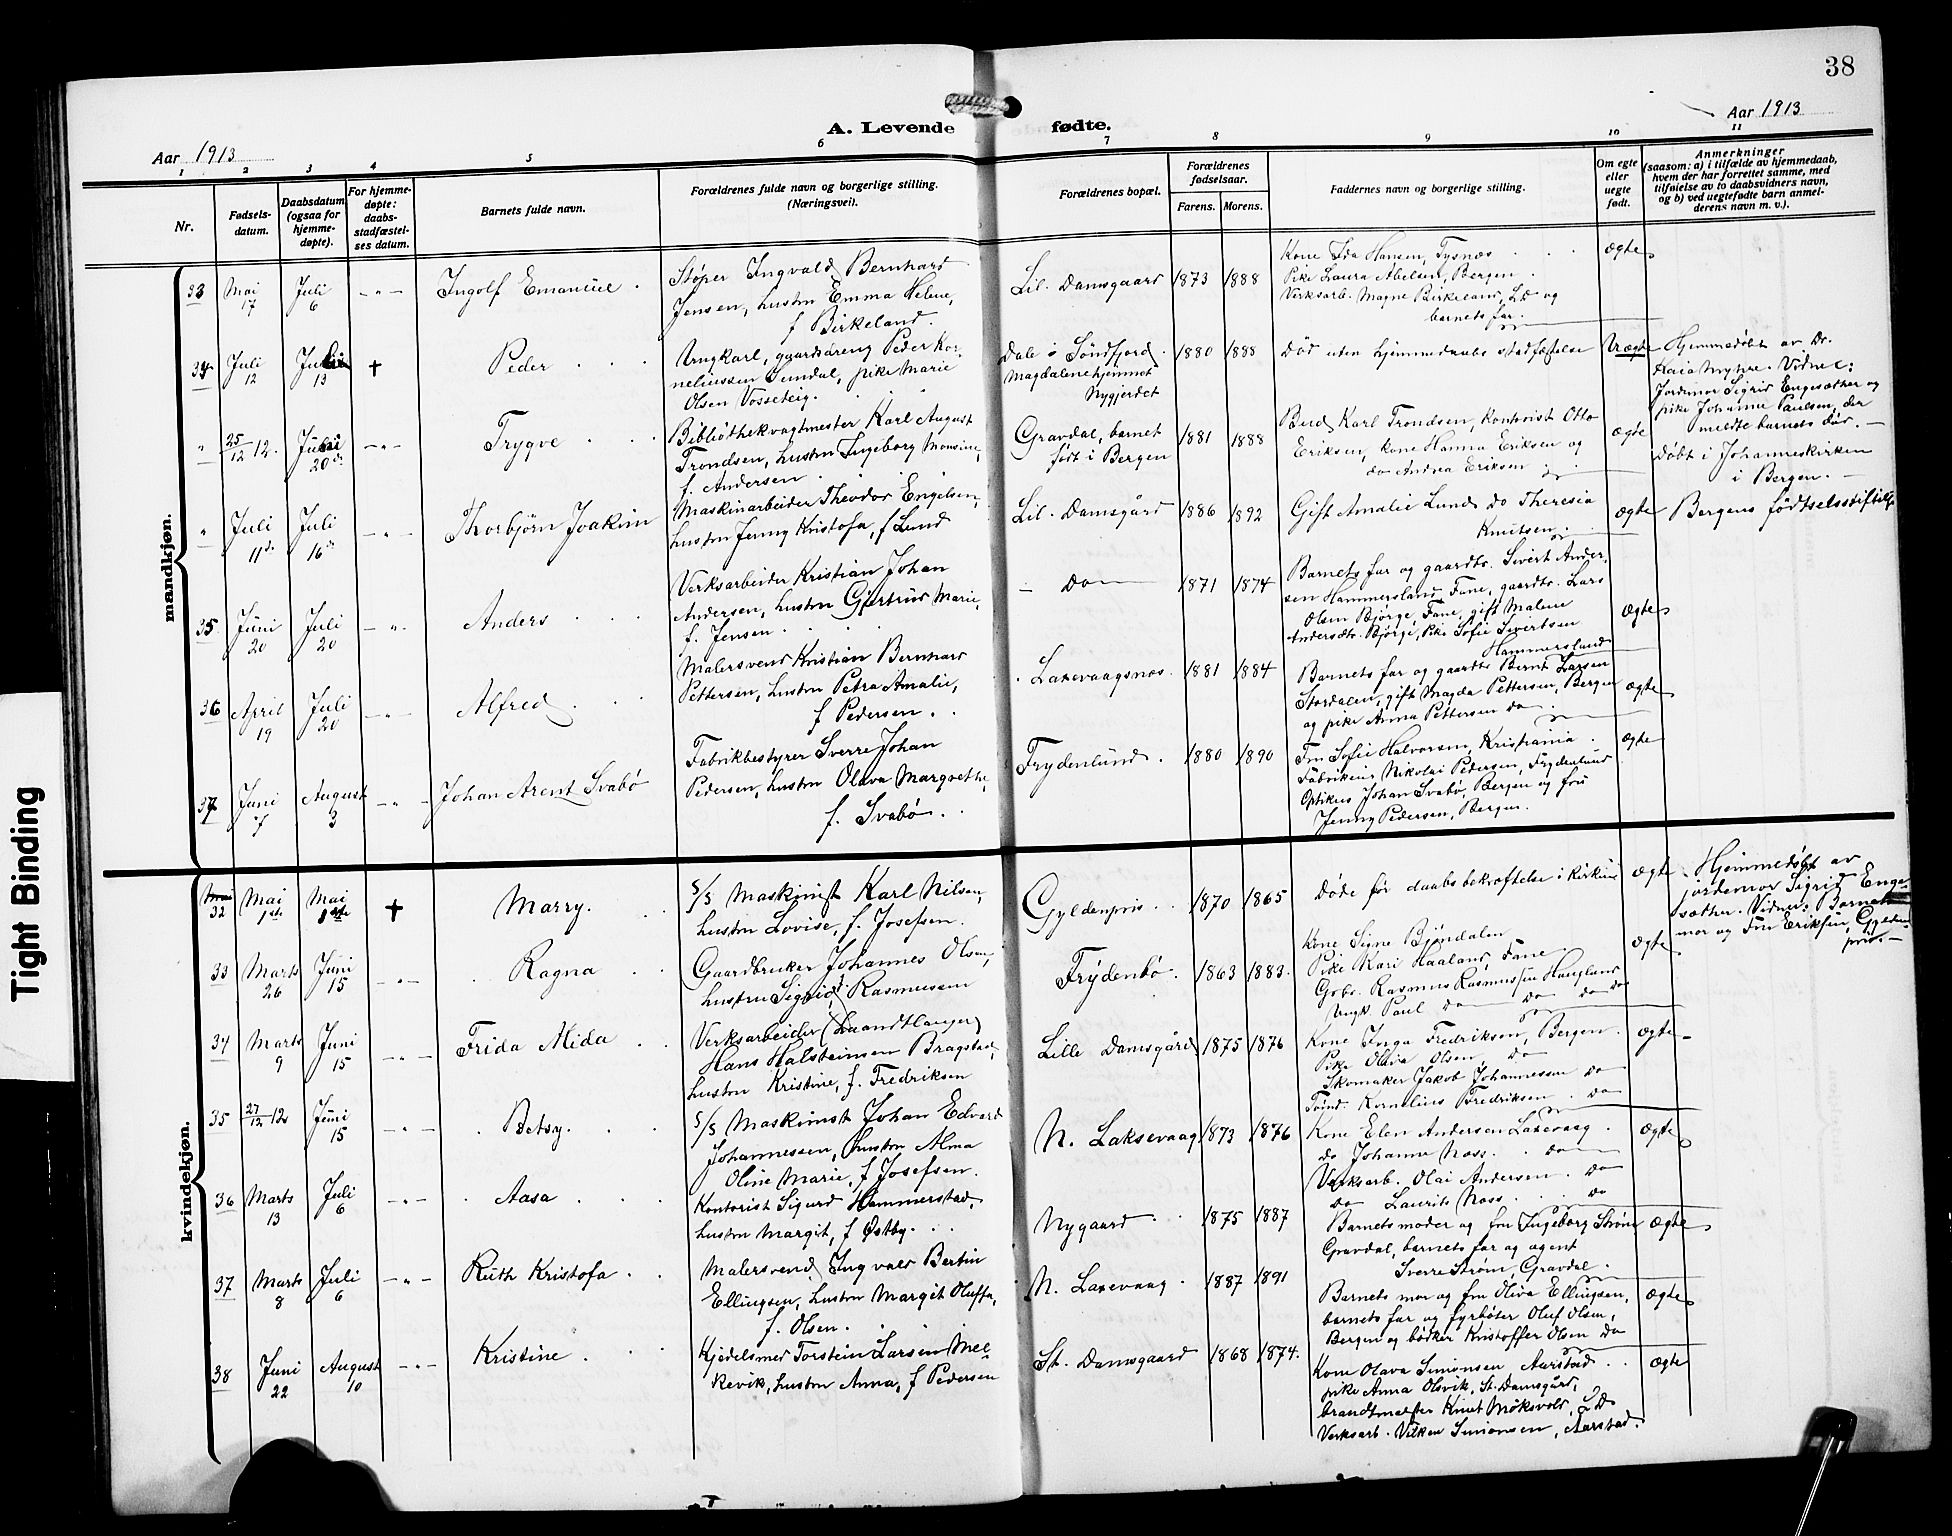 38
Aar 1913
A. Levende fødte.
Aar 1913
1 2 3 4 5 6 7 8 9 10 11
Nr.
Fødsels-
datum.
Daabsdatum
(ogsaa for
hjemme-
døpte).
For hjemme-
døpte:
daabs-
stadfæstel-
ses datum.
Barnets fulde navn.
Forældrenes fulde navn og borgerlige stilling.
(Næringsvei).
Forældrenes bopæl.
Forældrenes
fødselsaar.
Farens. Morens.
Faddernes navn og borgerlige stilling.
Om egte
eller
uegte
født.
Anmerkninger
(saasom: a) i tilfælde av hjemmedaab,
hvem der har forrettet samme, med
tilføielse av to daabsvidners navn,
og b) ved uegtefødte barn anmel-
derens navn m. v.).
mandkjøn.
33 Mai 17 Juli 6 - " - Ingolf Emanuel
Støper Ingvald Bernhard
Jensen, hustru Emma Helene,
f Birkeland.
Lil. Damsgaard 1873 1888
Kone Ida Hansen, Tysnæs
Pike Laura Abelsen, Bergen
Verksarb. Magne Birkeland, LD og
barnets far.
ægte
34 Juli 12 Juli 13 † Peder
Ungkarl, gaardsdreng Peder Kor-
neliussen Sundal, pike Marie
Olsen Vosseteig.
Dale i Söndfjord
Magdalenehjemmet
Nygjerdet
1880 1888
Död uten hjemmedaabs stadfæstelse
Uægte
Hjemmedöbt av Dr.
Kaia Myhre. Vidner:
Jordemor Sigrid Engesæther og
pike Johanne Paulsen, der
meldte barnets död. -
" 25/12 12. Juli 20de - " - Trygve
Bibliothekvagtmester Karl August
Trondsen, hustru Ingeborg Monsine,
f. Andersen
Gravdal, barnet
født i Bergen
1881 1888
Bud Karl Trondsen, kontorist Otto
Eriksen, kone Hanna Eriksen og
do Andrea Eriksen
ægte
döbt i Johanneskirken
i Bergen. -
" Juli 11te Juli 16de - " - Thorbjörn Joakim
Maskinarbeider Theodor Engelsen,
hustru Jenny Kristofa, f Lund
Lil. Damsgård 1886 1892
Gift Amalie Lund, do Theresia
Knutsen.
ægte
Bergens födtselsstiftelse
35 Juni 20 Juli 20 - " - Anders
Verksarbeider Kristian Johan
Andersen, hustru Gjertrud Marie,
f. Jensen.
- Do - 1871 1874
Barnets far og gaardbr. Sivert Ander-
sen Hammersland, Fane, gaardbr. Lars
Olsen Bjørge, Fane, gift Malene
Andersdtr. Bjørge, Pike Sofie Sivertsen
Hammersland
ægte
36 April 19 Juli 20 - " - Alfred
Malersvend Kristian Bernhard
Pettersen, hustru Petra Amalie,
f Pedersen.
Laxevaagsnes 1881 1884
Barnets far og gaardbr Bernt Larsen
Stordalen, gift Magda Pettersen, Bergen
og pike Anna Pettersen do
ægte
37 Juni 7 August 3 - " - Johan Arent Svabö
Fabrikbestyrer Sverre Johan
Pedersen, hustru Olava Margrethe,
f. Svabø.
Frydenlund 1880 1890
Fru Sofie Halvorsen, Kristiania
Fabrikeier Nikolai Pedersen, Frydenlund
Optikus Johan Svabö, Bergen og fru
Jenny Pedersen, Bergen.
ægte
kvindekjøn.
32 Mai 1ste Mai 1ste † Marry.
S/S Maskinist Karl Nilsen,
hustru Lovise, f. Josefsen.
Gyldenpris 1870 1865
Døde før daabsbekræftelse i kirken
ægte
Hjemmedøbt av
jordemor Sigrid Enge-
sæther. Vidner: Barnets
mor og Fru Eriksen, Gylden-
pris. -
33 Marts 26 Juni 15 - " - Ragna
Gaardbruker Johannes Olsen,
hustru Sigrid, Rasmussen
Frydenbö 1863 1883.
Kone Signe Bjöndalen
Pike Kari Haaland, Fane
Grbr. Rasmus Rasmussen Haugland
Ungk. Paul do do do do
ægte
34 Marts 9 Juni 15 - " - Frida Alida
Verksarbeider (haandlanger)
Hans Halsteinsen Bragstad,
hustru Kristine, f. Fredriksen
Lille Damsgård 1875 1876
Kone Inga Fredriksen, Bergen
Pike Olivia Olsen, do
Skomaker Jakob Johannessen do
Tømd. Kornelius Fredriksen do
ægte
35 27/12 12 Juni 15 - " - Betsy.
S/S Maskinist Johan Edvard
Johannessen, hustru Alma
Oline Marie, f Josefsen.
N. Laksevaag 1873 1876
Kone Elen Andersen Laxevaag
do Johanne Næss do
Verksarb. Olai Andersen do
do Laurits Næss do
ægte
36 Marts 13 Juli 6 - " - Aasa
Kontorist Sigurd Hammerstad,
hustru Margit, f Østby.
Nygaard 1875 1887
Barnets moder og fru Ingeborg Strøm
Gravdal, barnets far og agent
Sverre Strøm, Gravdal.
ægte
37 Marts 8 Juli 6 - " - Ruth Kristofa
Malersvend Ingvald Bertin
Ellingsen, hustru Margit Oluffa,
f. Olsen.
N. Laxevaag 1887 1891
Barnets mor og fru Oliva Ellingsen,
barnets far og fyrbøter Oluf Olsen,
Bergen og bødker Kristoffer Olsen do
ægte
38 Juni 22 August 10 - " - Kristine
Kjedelsmed Torstein Larsen Mel-
kevik, hustru Anna, f Pedersen
St. Damsgaard 1868 1874.
Kone Olava Simonsen Aarstad
pike Anna Olsvik, St. Damsgård,
brandmester Knut Møksvold, LD
Verksarb. Vilken Simonsen, Aarstad.
ægte
Tight Binding